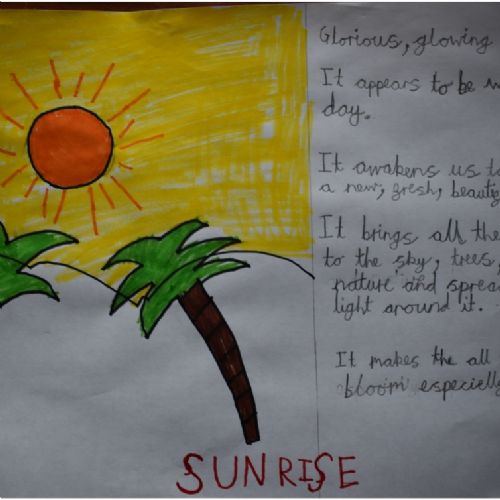 Glorious, glowing
It appears to be
day.
It awakens us to
a new, fresh,
It brings all the
to the sky, trees,
nature and
light around it.
It makes the all
bloom especially
SUNRISE